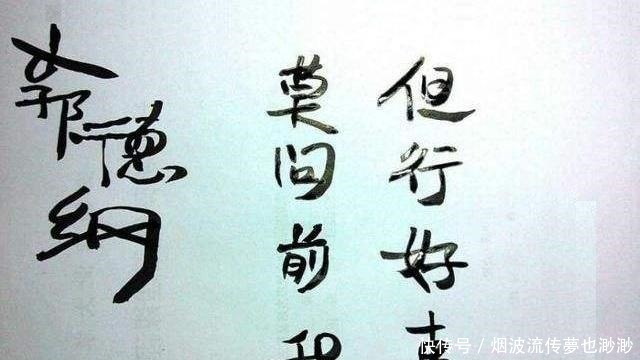 但行好
莫问前
郭德纲
快传号 / 烟波流传夢也渺渺